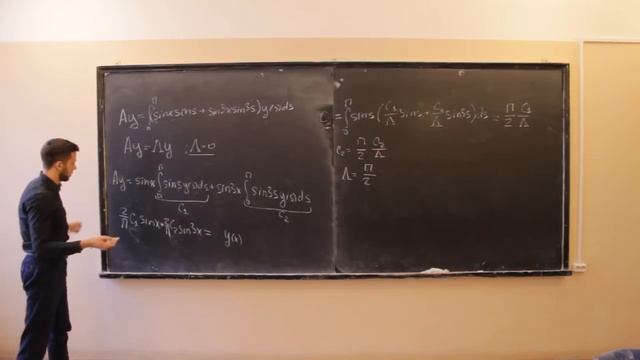 Ay=∫₀^π(sinxsins+sin3xsin3s)y(s)ds
Ay=Λy :Λ≠0
Ay=sinx∫₀^π sinsy(s)ds+sin3x∫₀^π sin3sy(s)ds
C₁ C₂
2/π C₁sinx+2/π C₂sin3x= y(x)
C₁=∫₀^π(sins(C₁/Λ sins+C₂/Λ sin3s))ds=π/2 C₁/Λ
C₂=π/2 C₂/Λ
Λ=π/2